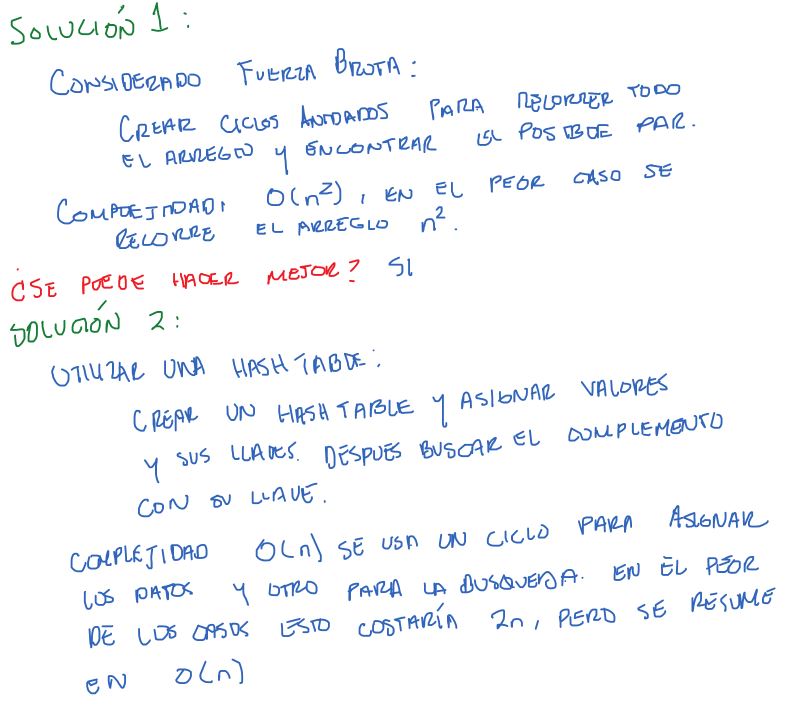 SOLUCIÓN 1:
CONSIDERADO FUERZA BRUTA:
CREAR CICLOS ANIDADOS PARA RECORRER TODO
EL ARREGLO Y ENCONTRAR EL POSIBLE PAR.
COMPLEJIDAD: O(n²), EN EL PEOR CASO SE
RECORRE EL ARREGLO n².
¿SE PUEDE HACER MEJOR? SI
SOLUCIÓN 2:
UTILIZAR UNA HASH TABLE:
CREAR UN HASH TABLE Y ASIGNAR VALORES
Y SUS LLAVES. DESPUÉS BUSCAR EL COMPLEMENTO
CON SU LLAVE.
COMPLEJIDAD O(n) SE USA UN CICLO PARA ASIGNAR
LOS DATOS Y OTRO PARA LA BUSQUEDA. EN EL PEOR
DE LOS CASOS ESTO COSTARÍA 2n, PERO SE RESUME
EN O(n)